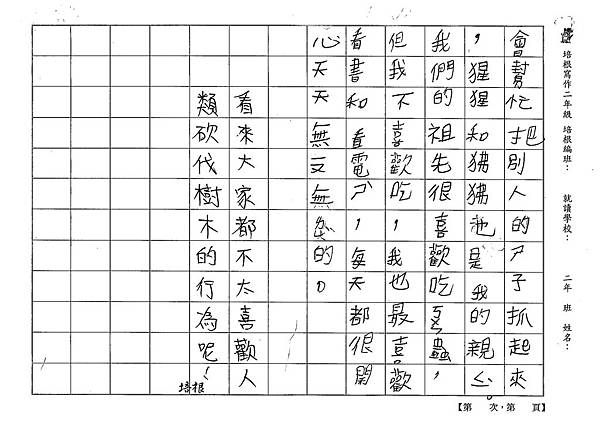 會幫忙把別人的ㄕ子抓起來
，猩猩和狒狒他是我的親ㄙ
我們的祖先很喜歡吃ㄓ蟲，
但我不喜歡吃，我也最喜歡
看書和看電ㄕˋ，每天都很開
心天天無又無慮的。
看來大家都不太喜歡人
類砍伐樹木的行為呢！
培根
培根寫作二年級 培根編班： 就讀學校： 二年 班 姓名：
【第 次，第 頁】